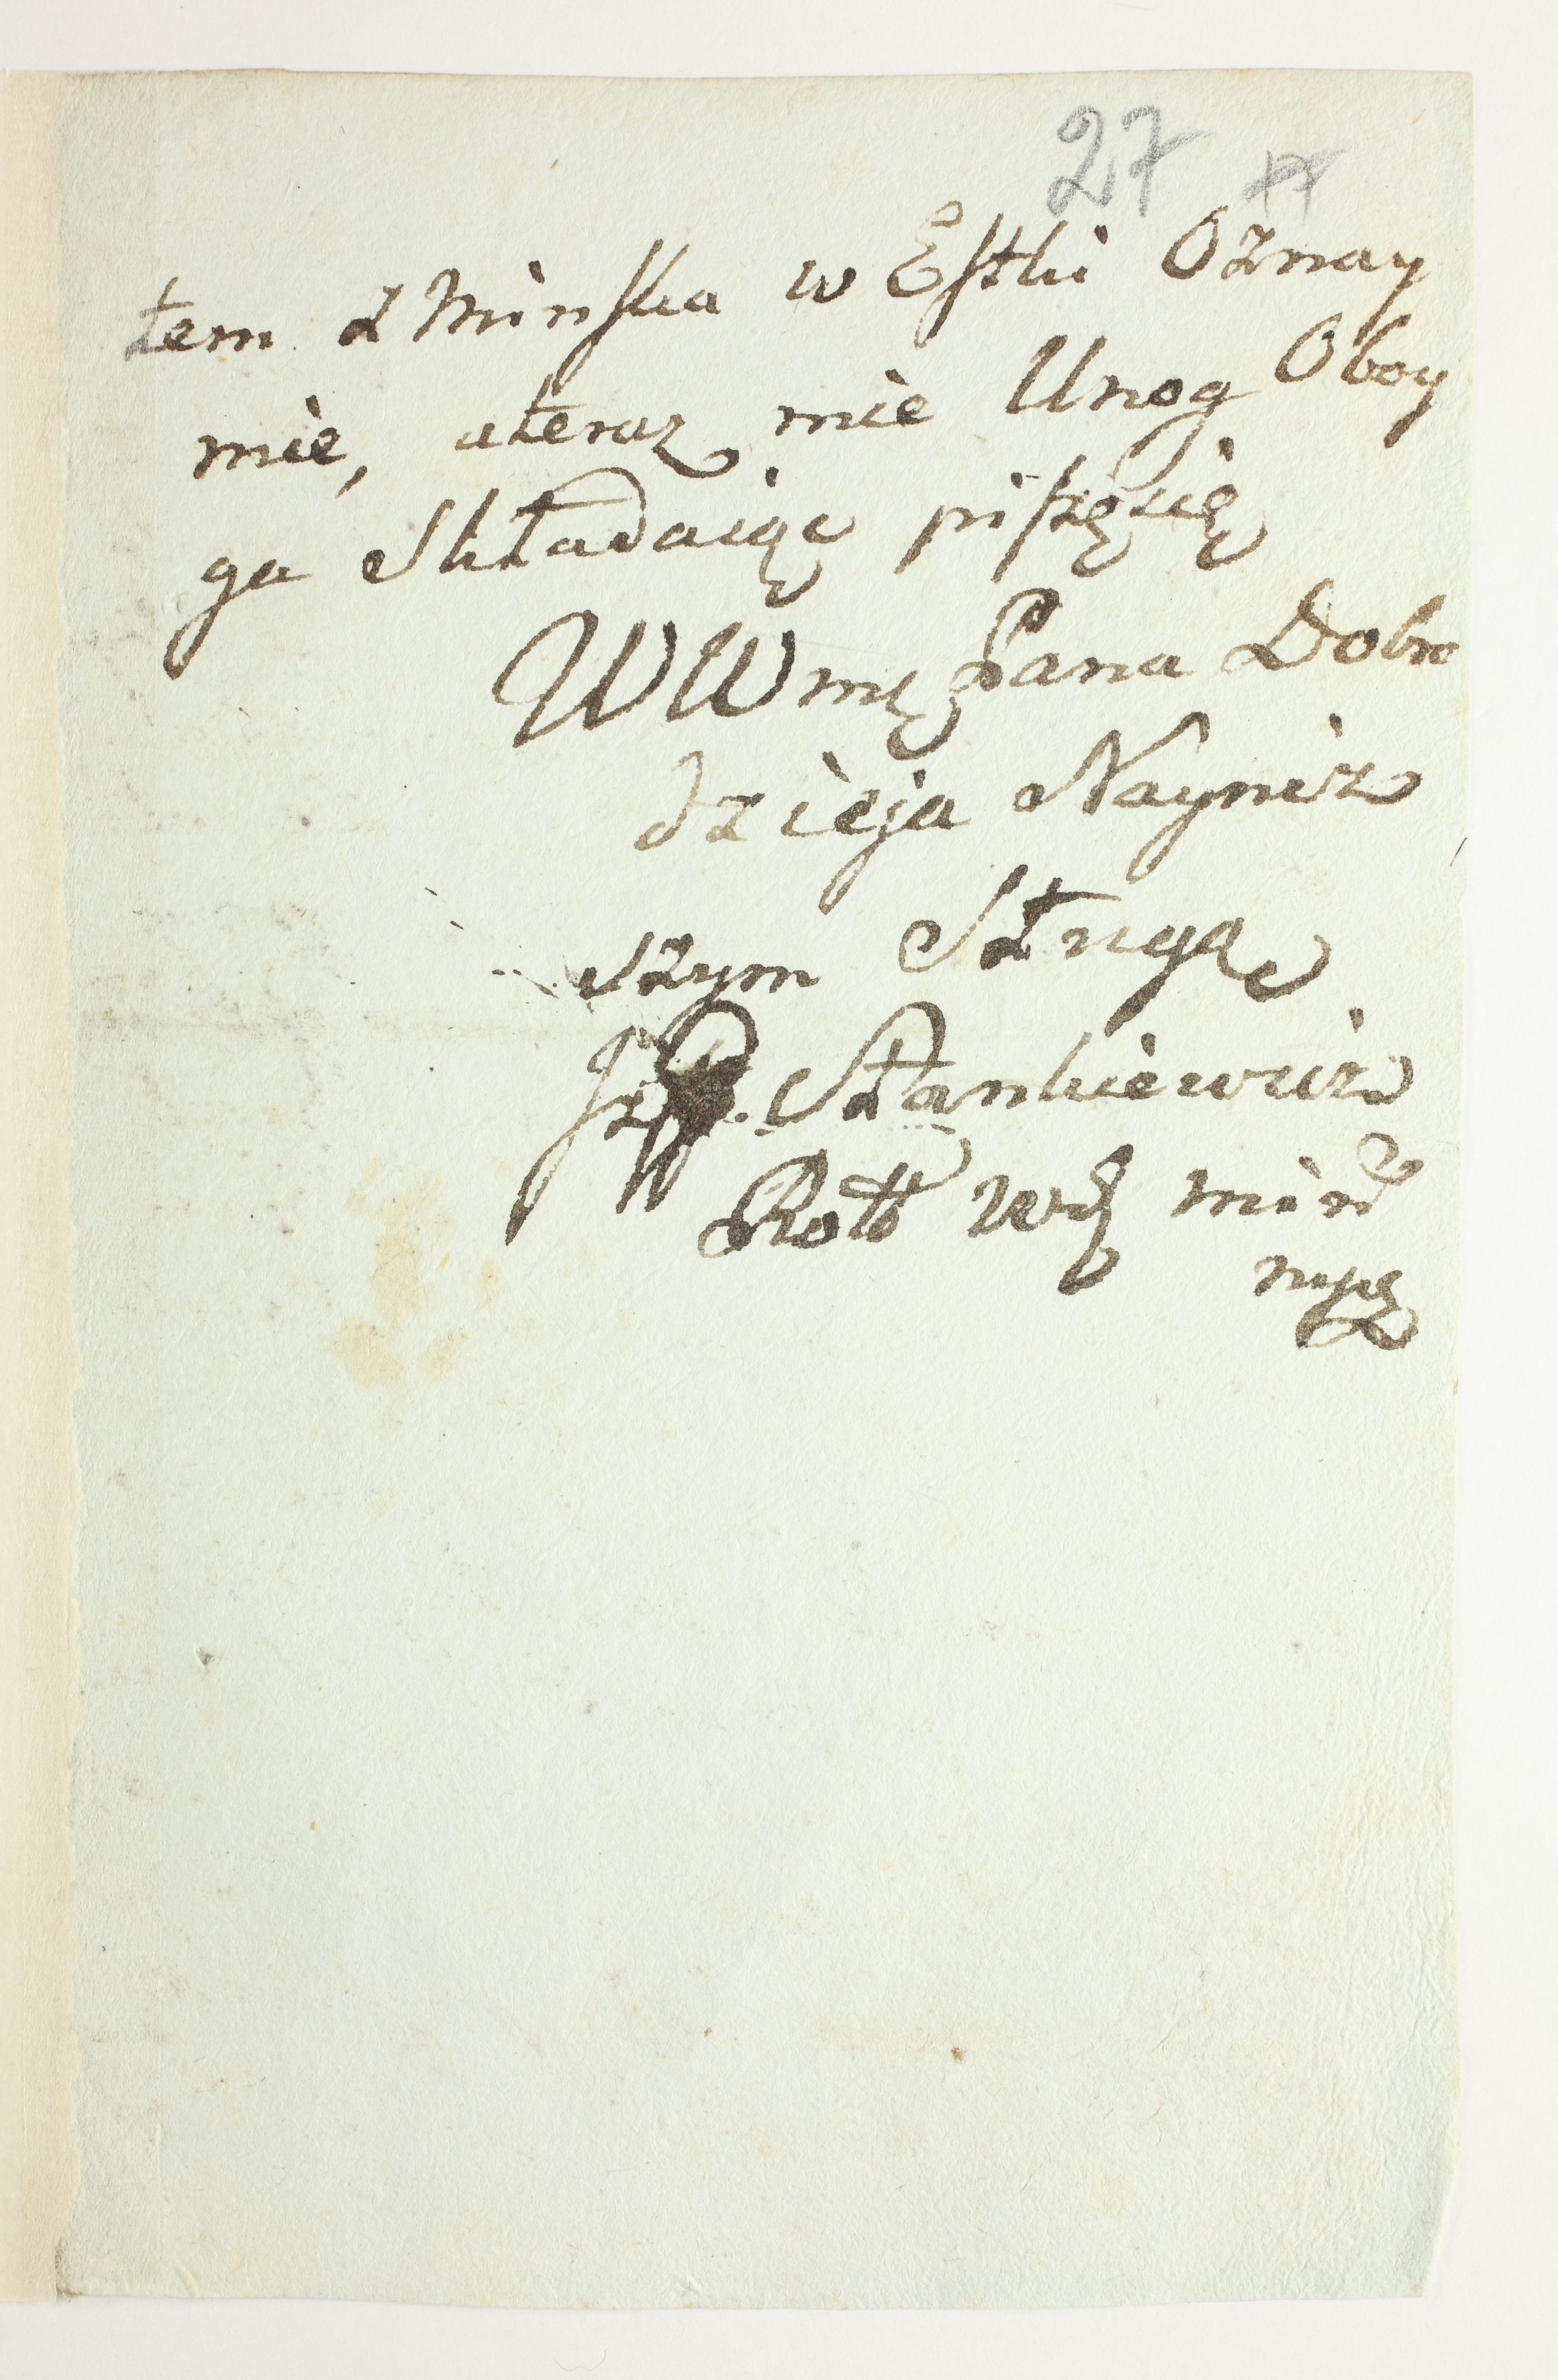 27
łem z Minska w Estki Oznay
mie, ateraz mie Unog Oboy
ga Składaiąc piszęsię
WWmę Pana Dobro
dzieja Nayniz
szym Sługą
Stankiewicz
Rott
mpą